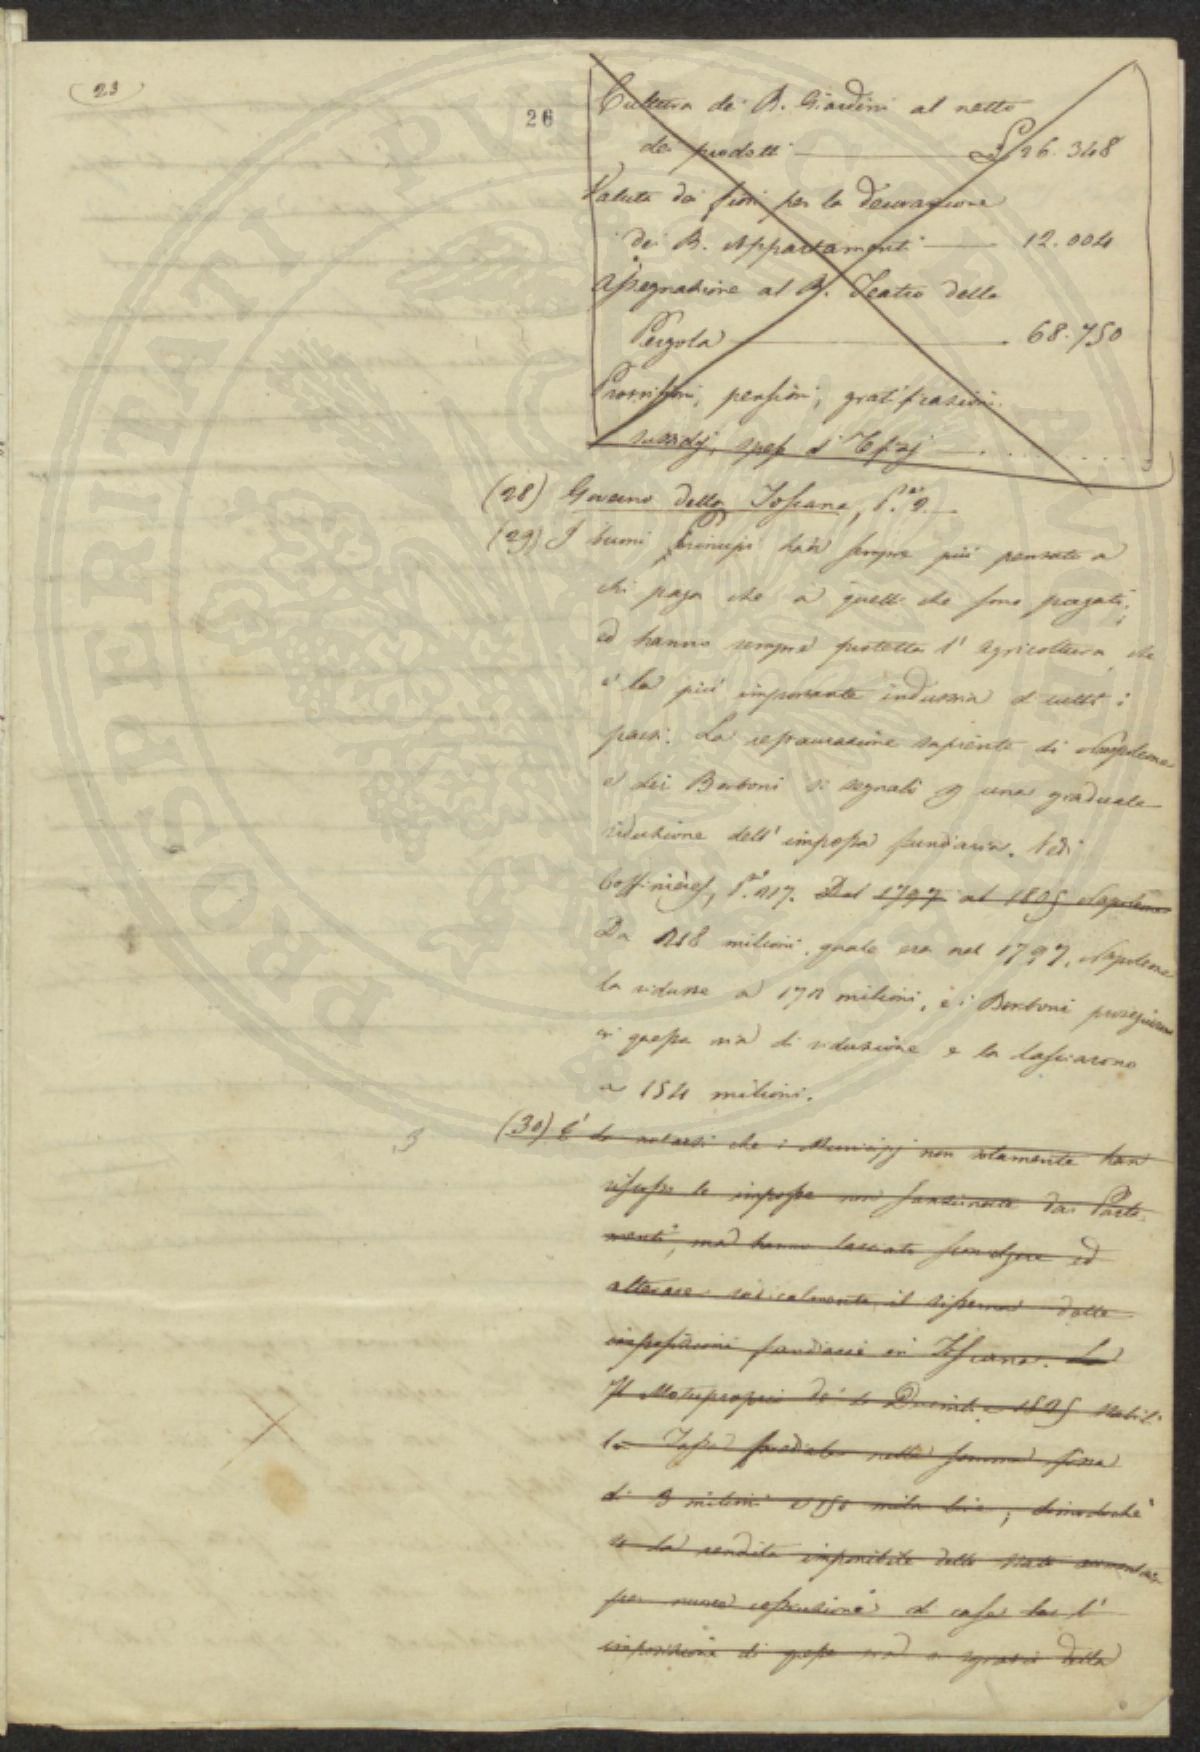 (23)
26
Cultura dei R. Giardini al netto
dei prodotti £ 26.348
Valuta dei fiori per la decorazione
dei R. Appartamenti 12.004
Assegnazione al R. Teatro della
Pergola 68.750
Provvisioni, pensioni, gratificazioni
sussidj, spese d'Ufizj
(28) Governo della Toscana, P.
(29) I buoni Principi han sempre più pensato a
chi paga che a quelli che sono pagati;
ed hanno sempre protetta l'agricoltura, che
è la più importante industria di tutti i
paesi. La restaurazione sapiente di Napoleone
e dei Borboni si segnalò una graduale
riduzione dell'imposta fundiaria. Vedi
Coffinières, P. 217. Dal 1797 al 1805 Napoleone
Da 218 milioni, quale era nel 1797, Napoleone
la ridusse a 172 milioni, e i Borboni proseguirono
in questa via di riduzione e la lasciarono
a 154 milioni.
3
(30) E' da notarsi che i Municipj non solamente han
riscosso le imposte non sanzionate dai Parla-
menti, ma hanno lasciato sconvolgere ed
alterare radicalmente il sistema delle
imposizioni fundiarie in Toscana. La
Il Motuproprio de' Dicembre 1825 stabilì
la Tassa prediale nella somma fissa
di 3 milioni e 150 mila lire; dimodochè
se la rendita imponibile dello Stato aumentava
per nuova costruzione di case la l'
imposizione di questa andava a sgravio della